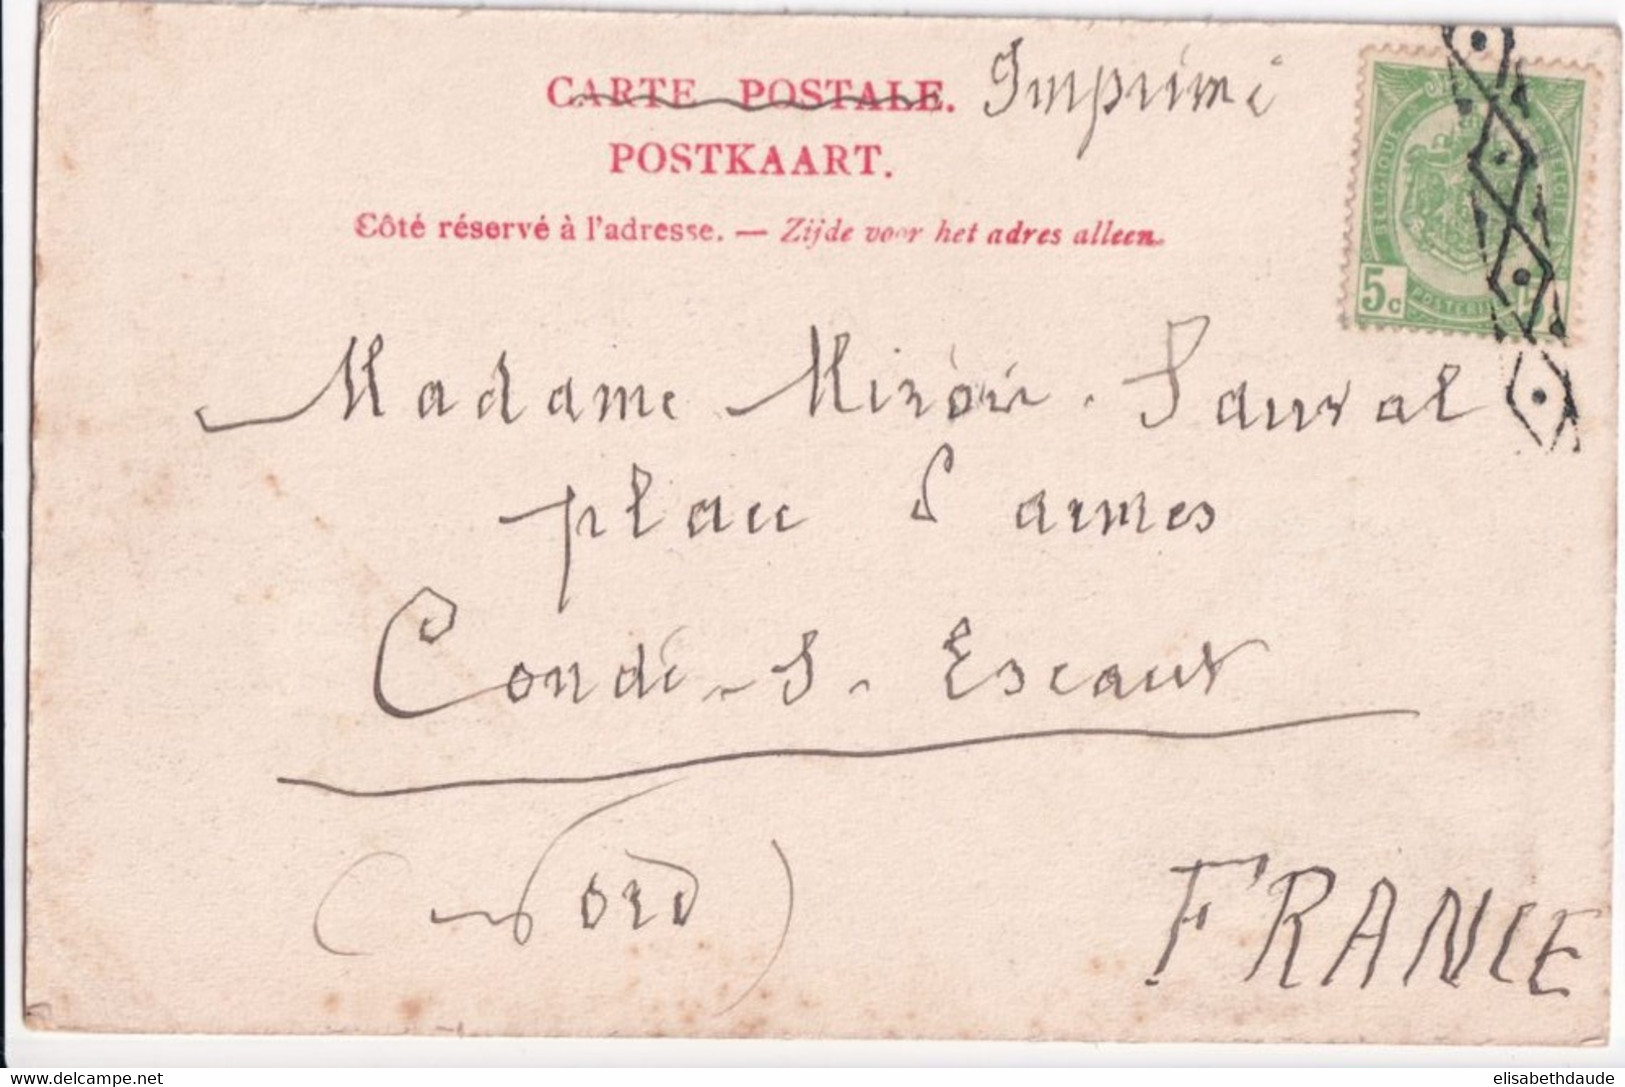 CARTE POSTALE. Imprimé
POSTKAART.
Côté réservé à l'adresse. — Zijde voor het adres alleen.
BELGIQUE BELGIË
5c POSTERIJ
Madame Miroir-Sauval
place d'armes
Condé-s-Escaut
(Nord)
FRANCE
delcampe.net
elisabethdaude